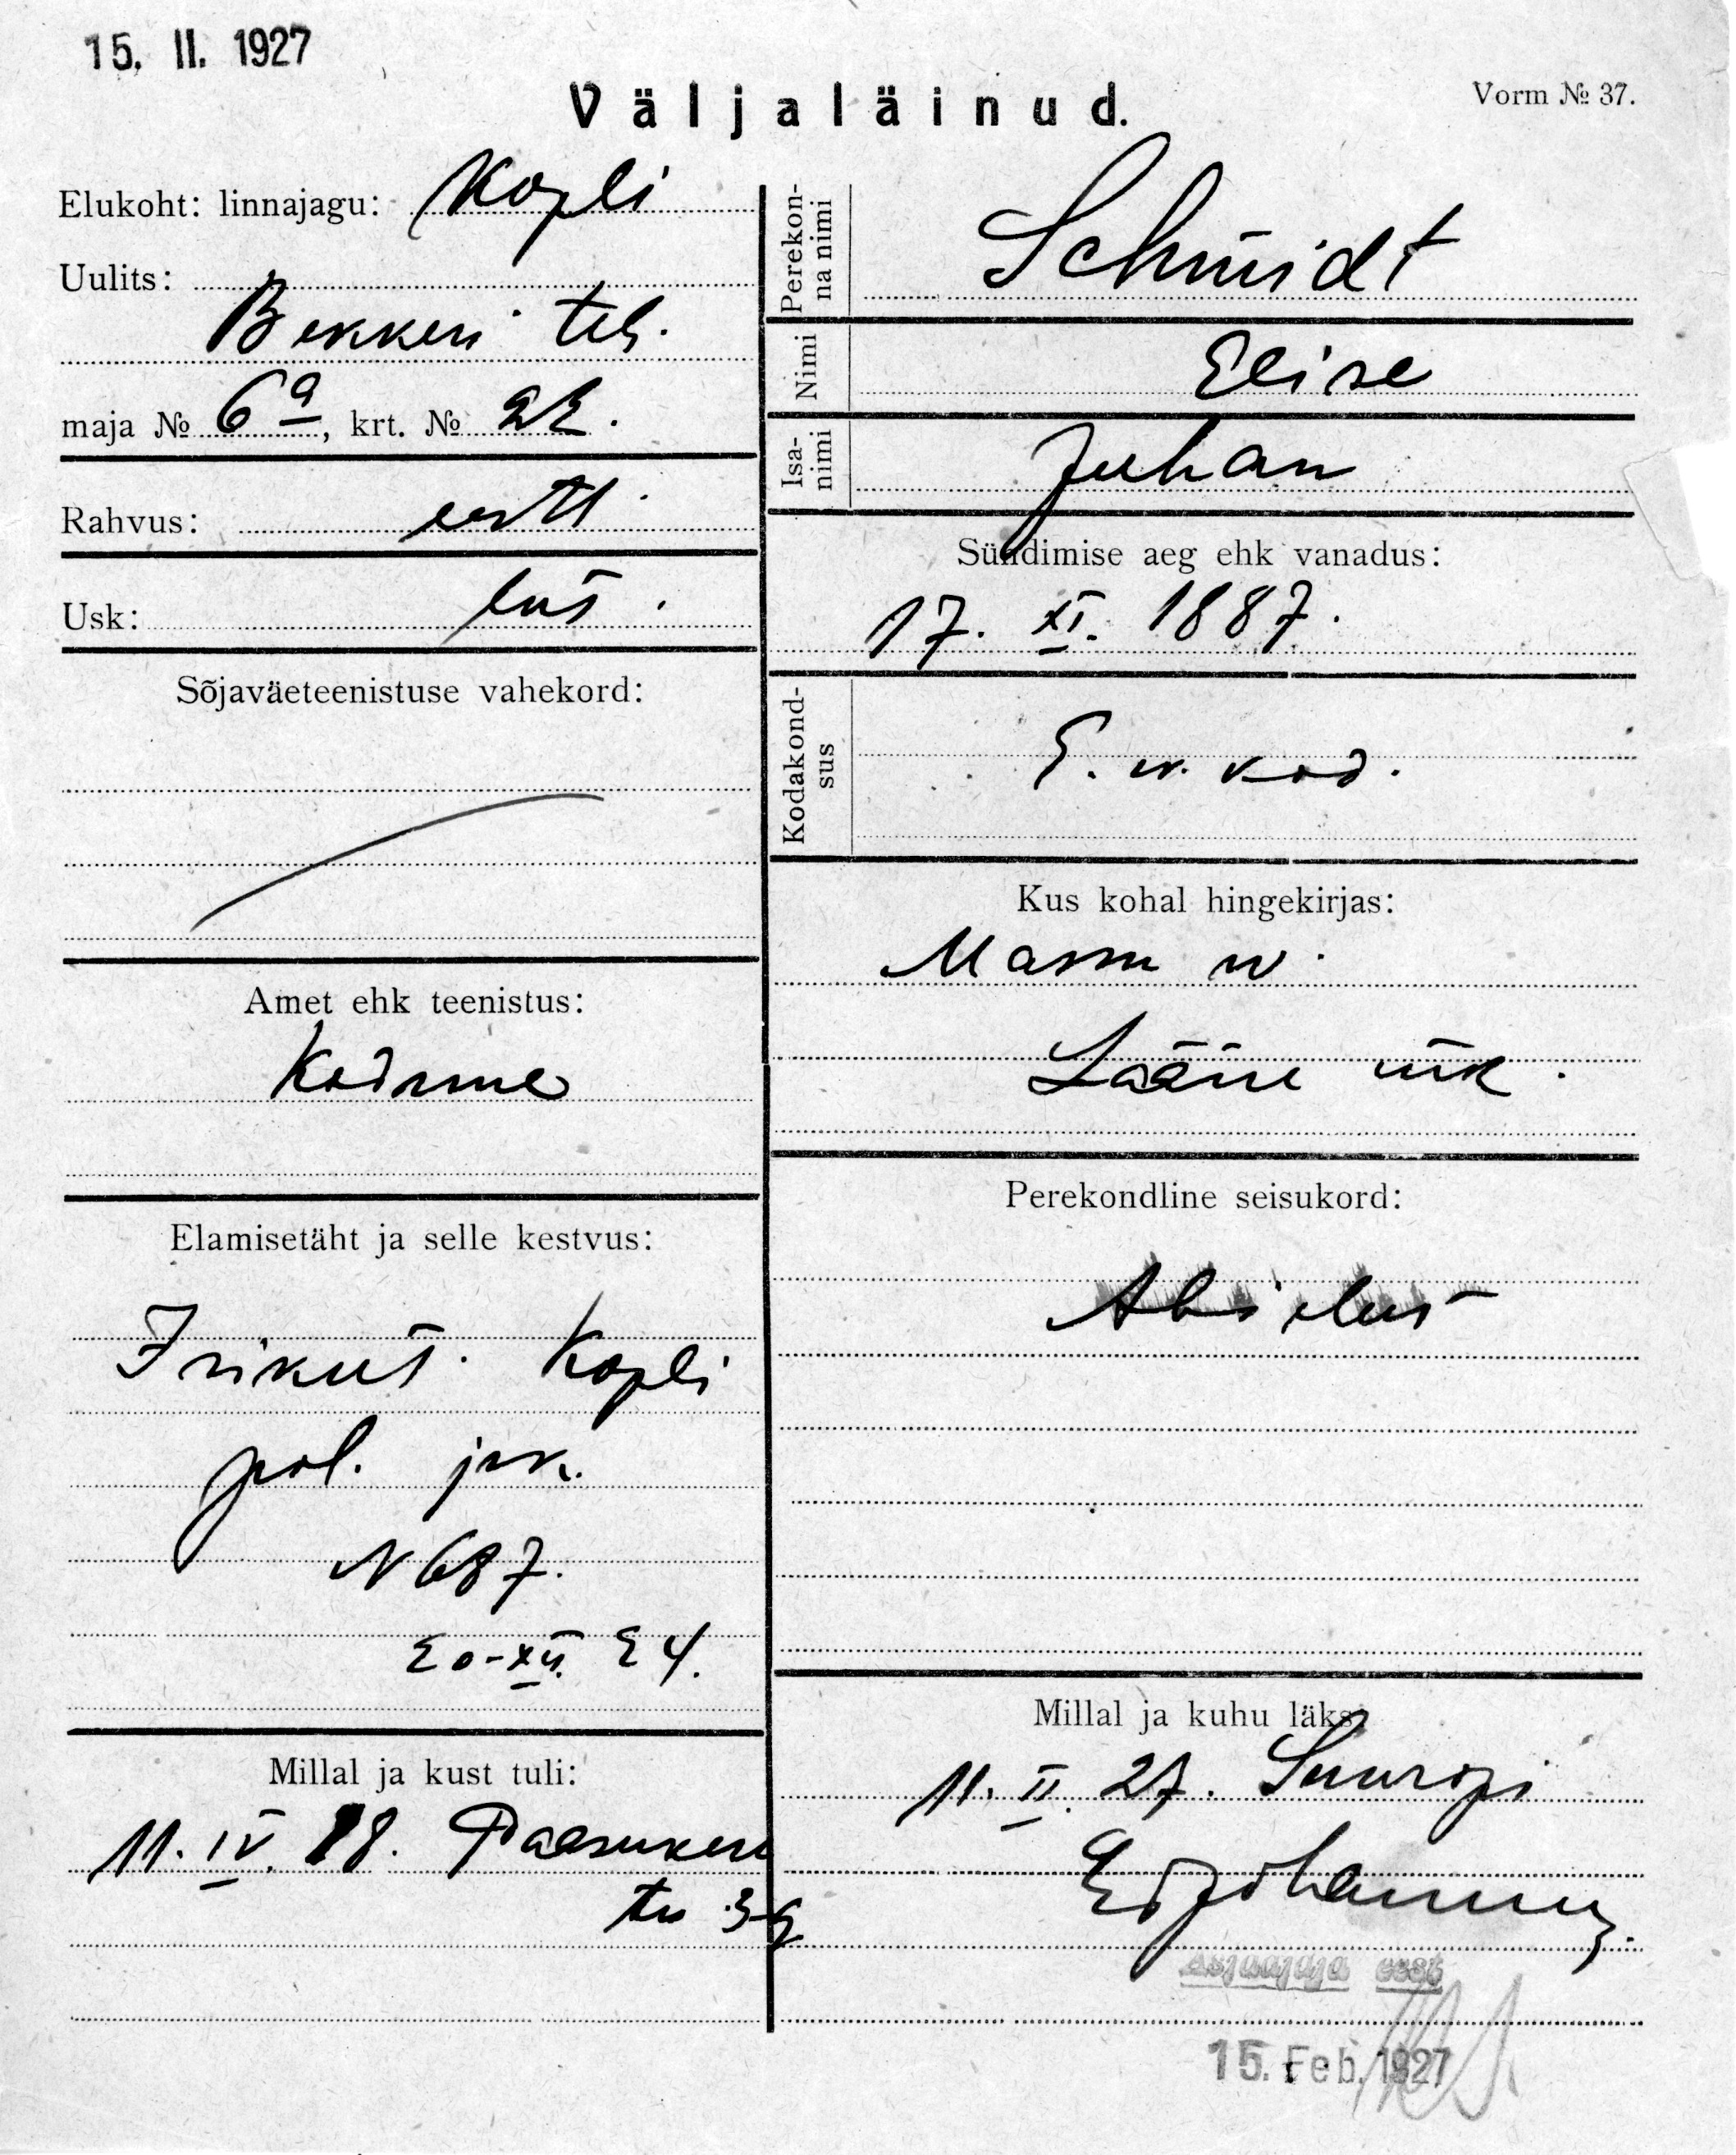 15. II. 1927
Väljaläinud.
Vorm № 37.
Elukoht: linnajagu: Kopli
Uulits:
Bekkeri teh.
maja № 6a, krt. № 22.
Rahvus: eesti
Usk: lut.
Sõjaväeteenistuse vahekord:
Amet ehk teenistus:
Kodune
Elamisetäht ja selle kestvus:
Isikut. Kopli
pol. jsk.
N 687.
20-XII. 24.
Millal ja kust tuli:
11. IV. 18. Paasukese
tn 3-9
Perekonna nimi
Schmidt
Nimi
Elise
Isanimi
Juhan
Sündimise aeg ehk vanadus:
17. XI. 1887.
Kodakondsus
E. w. kod.
Kus kohal hingekirjas:
Massu w.
Lääne mk.
Perekondline seisukord:
Abielus
Millal ja kuhu läks
11. II. 27. Suuropi
asjaajaja eest
15. Feb. 1927